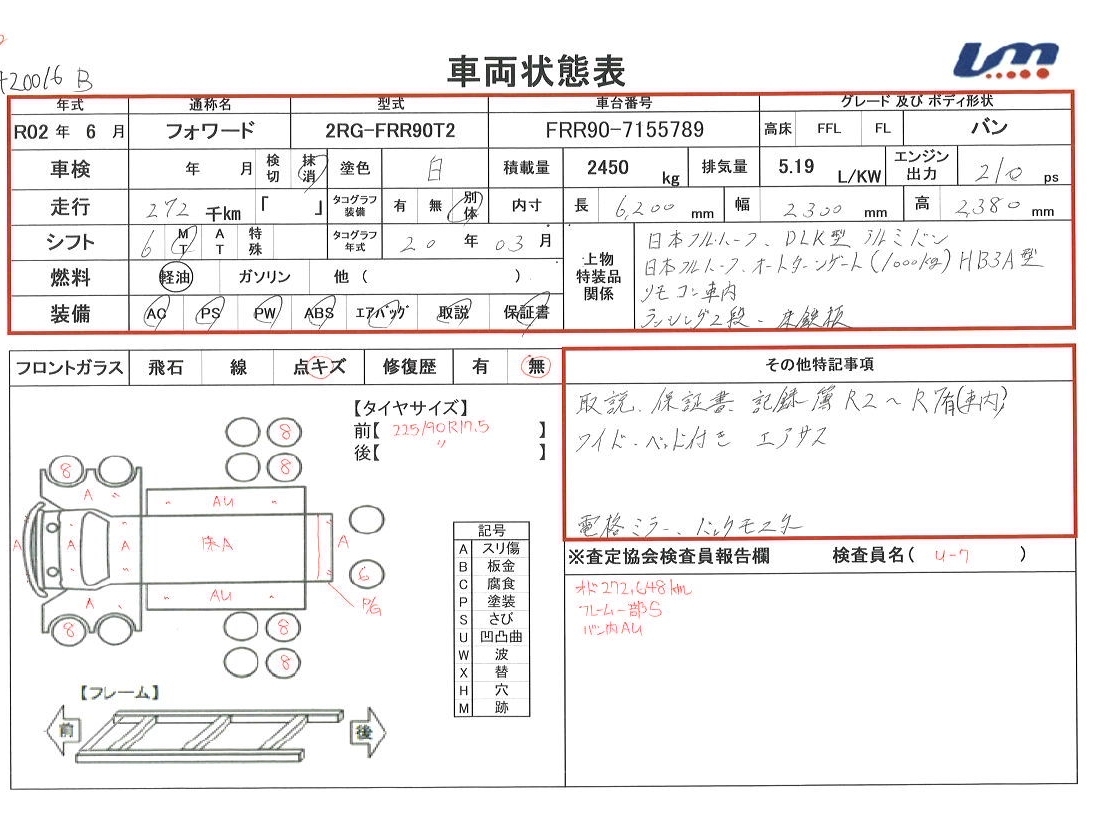 車両状態表
420016 B
年式 通称名 型式 車台番号 グレード 及び ボディ形状
R02 年 6 月 フォワード 2RG-FRR90T2 FRR90-7155789 高床 FFL FL バン
車検 年 月 検切 抹消 塗色 白 積載量 2450 kg 排気量 5.19 L/KW エンジン出力 210 ps
走行 272 千km 「 」 タコグラフ装備 有 無 別体 内寸 長 6,200 mm 幅 2300 mm 高 2,380 mm
シフト 6 MT AT 特殊 タコグラフ年式 20 年 03 月 上物特装品関係
日本フルハーフ、DLK型 アルミバン
日本フルハーフ、オートターンゲート(1000kg) HB3A型
リモコン車内
ラッシング2段・床鉄板
燃料 軽油 ガソリン 他( )
装備 AC PS PW ABS エアバッグ 取説 保証書
フロントガラス 飛石 線 点キズ 修復歴 有 無
その他特記事項
取説、保証書、記録簿R2〜R7有(車内)
ワイド・ベッド付き エアサス
電格ミラー、バックモニター
【タイヤサイズ】
前【 225/90R17.5 】
後【 〃 】
8
8
8 A 〃
〃 AU 〃
A 〃 A 〃 A 床A A
6
〃 A 〃
〃 AU 〃
P/G
8 8
8
記号
A スリ傷
B 板金
C 腐食
P 塗装
S さび
U 凹凸曲
W 波
X 替
H 穴
M 跡
【フレーム】
前 後
※査定協会検査員報告欄 検査員名( U-7 )
オド272,648km
フレーム一部S
バン内AU